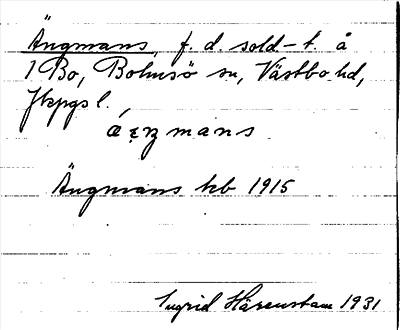 Ängmans, f. d. sold-t. å
1 Bo, Bolmsö sn, Västbo hd,
Jkpgs l.
Ängmans kb 1915
Ingrid Härenstam 1931